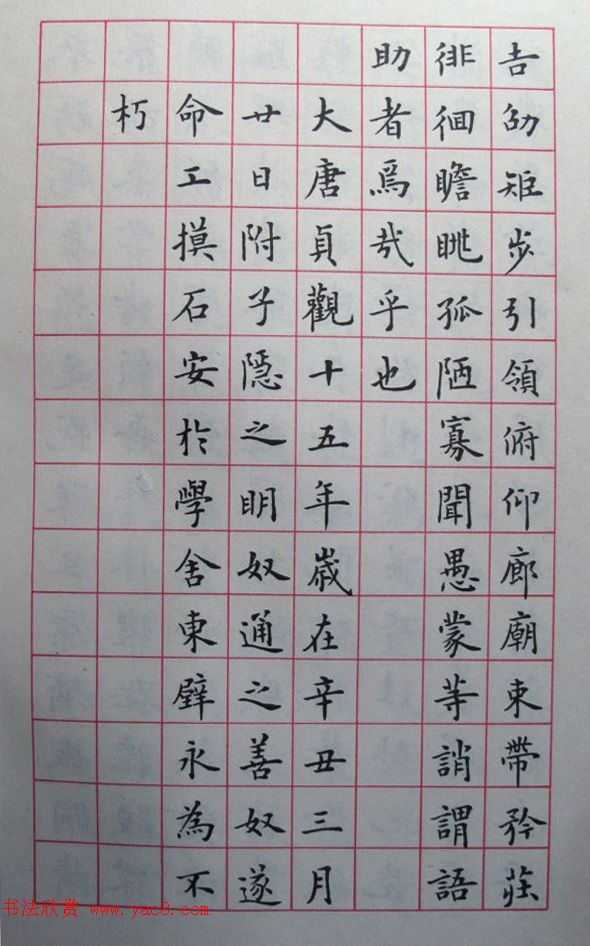 吉劭矩步引領俯仰廊廟束帶矜莊
徘徊瞻眺孤陋寡聞愚蒙等誚謂語
助者焉哉乎也
大唐貞觀十五年歲在辛丑三月
廿日附子隱之明奴通之善奴遂
命工摸石安於學舍東壁永為不
朽
书法欣赏 www.yac8.com